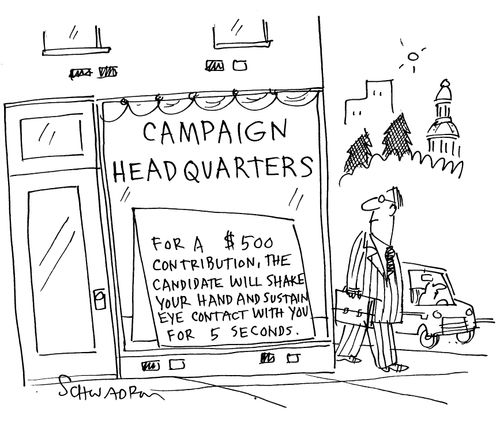 CAMPAIGN
HEADQUARTERS
FOR A $500
CONTRIBUTION, THE
CANDIDATE WILL SHAKE
YOUR HAND AND SUSTAIN
EYE CONTACT WITH YOU
FOR 5 SECONDS.
SCHWADRON